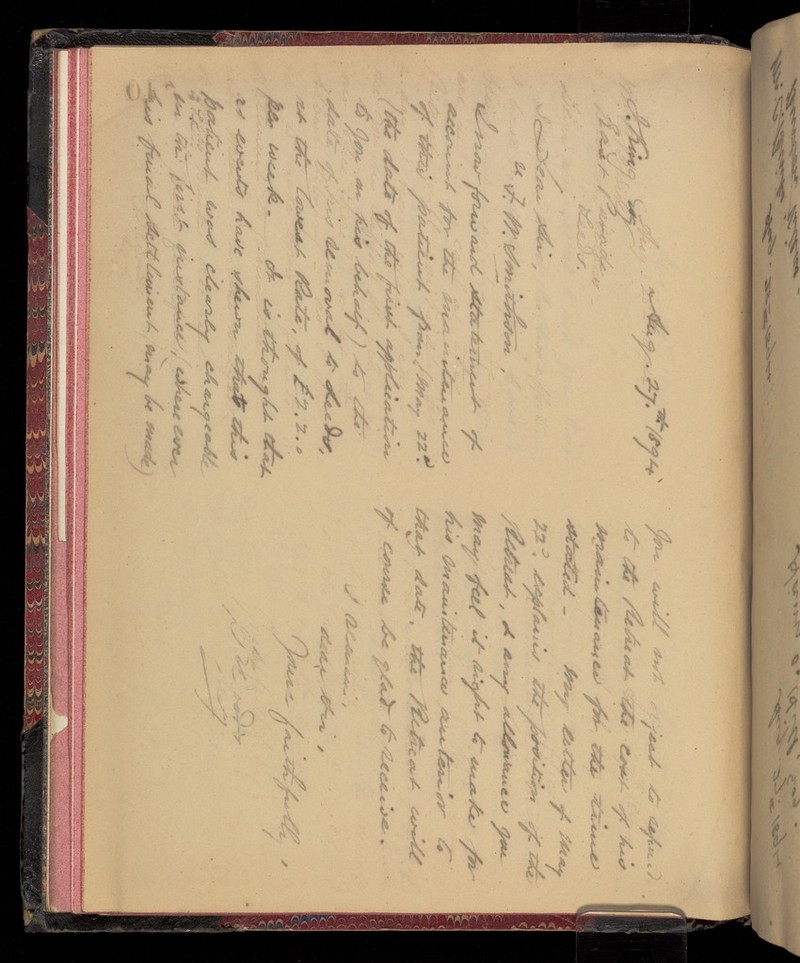 Aug. 27th 1894
East Parade
Leeds.
Dear Sir,
re J. W. Smithson,
I now forward statement of
account for the maintenance
of this patient from May 22d
(the date of the first application
to you on his behalf) to the
date of his removal to Leeds,
at the lowest Rate, of £2.2.0
per week. It is thought that
as events have shewn that this
patient was clearly chargeable
in the first instance, (wherever
his final settlement may be made)
you will not object to refund
to the Retreat the cost of his
maintenance for the time
stated - My letter of May
22d explains the position of the
Retreat, & any allowance you
may feel it right to make for
his maintenance anterior to
that date, the Retreat will
of course be glad to receive.
I remain,
dear Sir,
Yours faithfully,